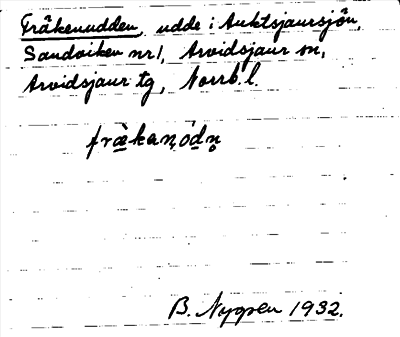 Fräkenudden, udde i Auktsjaursjön,
Sandviken nr 1, Arvidsjaur sn,
Arvidsjaur tg, Norrb. l.
fræ̀kanọ́dṇ
B. Nygren 1932.